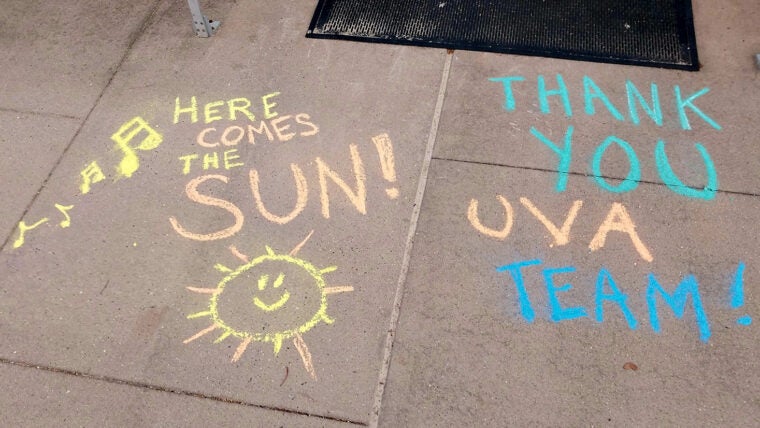 HERE
COMES
THE
SUN!
THANK
YOU
UVA
TEAM!